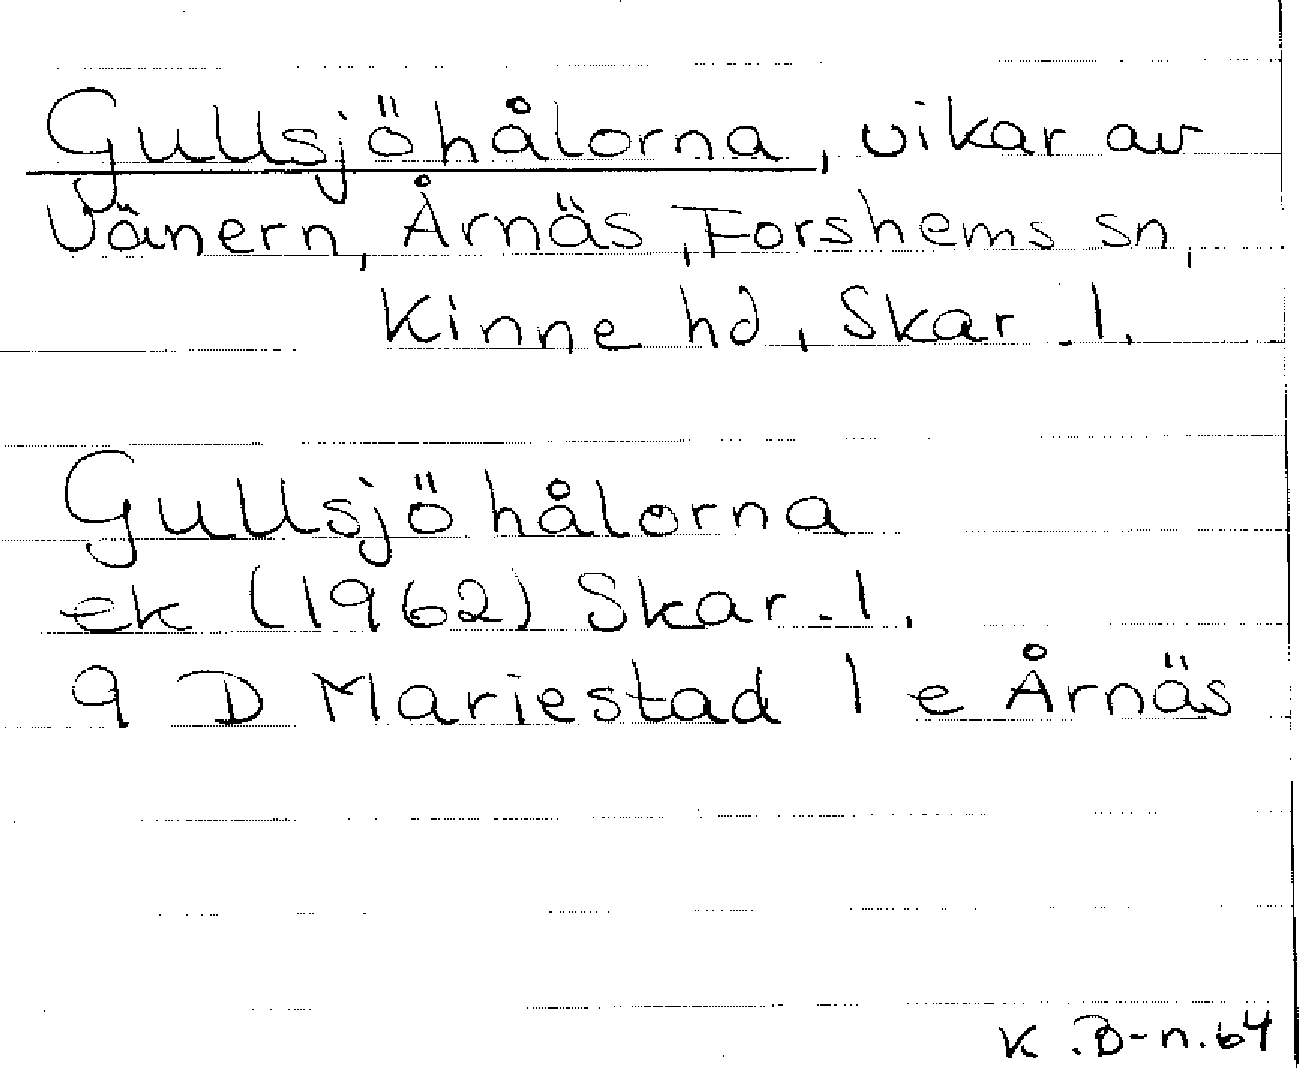 Gullsjöhålorna, vikar av
Vänern, Årnäs, Forshems sn,
Kinne hd, Skar. l.
Gullsjöhålorna
ek (1962) Skar. l.
9 D Mariestad 1 e Årnäs
K.B-n.64